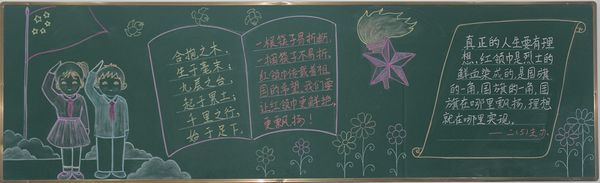 合抱之木,
生于毫末;
九层之台,
起于累土;
千里之行,
始于足下.
一根筷子易折断,
一捆筷子不易折,
红领巾系载着祖
国的希望,我们要
让红领巾更鲜艳,
更飘扬!
真正的人生要有理
想,红领巾是烈士的
鲜血染成的,是国旗
的一角,国旗的一角,国
旗在哪里飘扬,理想
就在哪里实现。